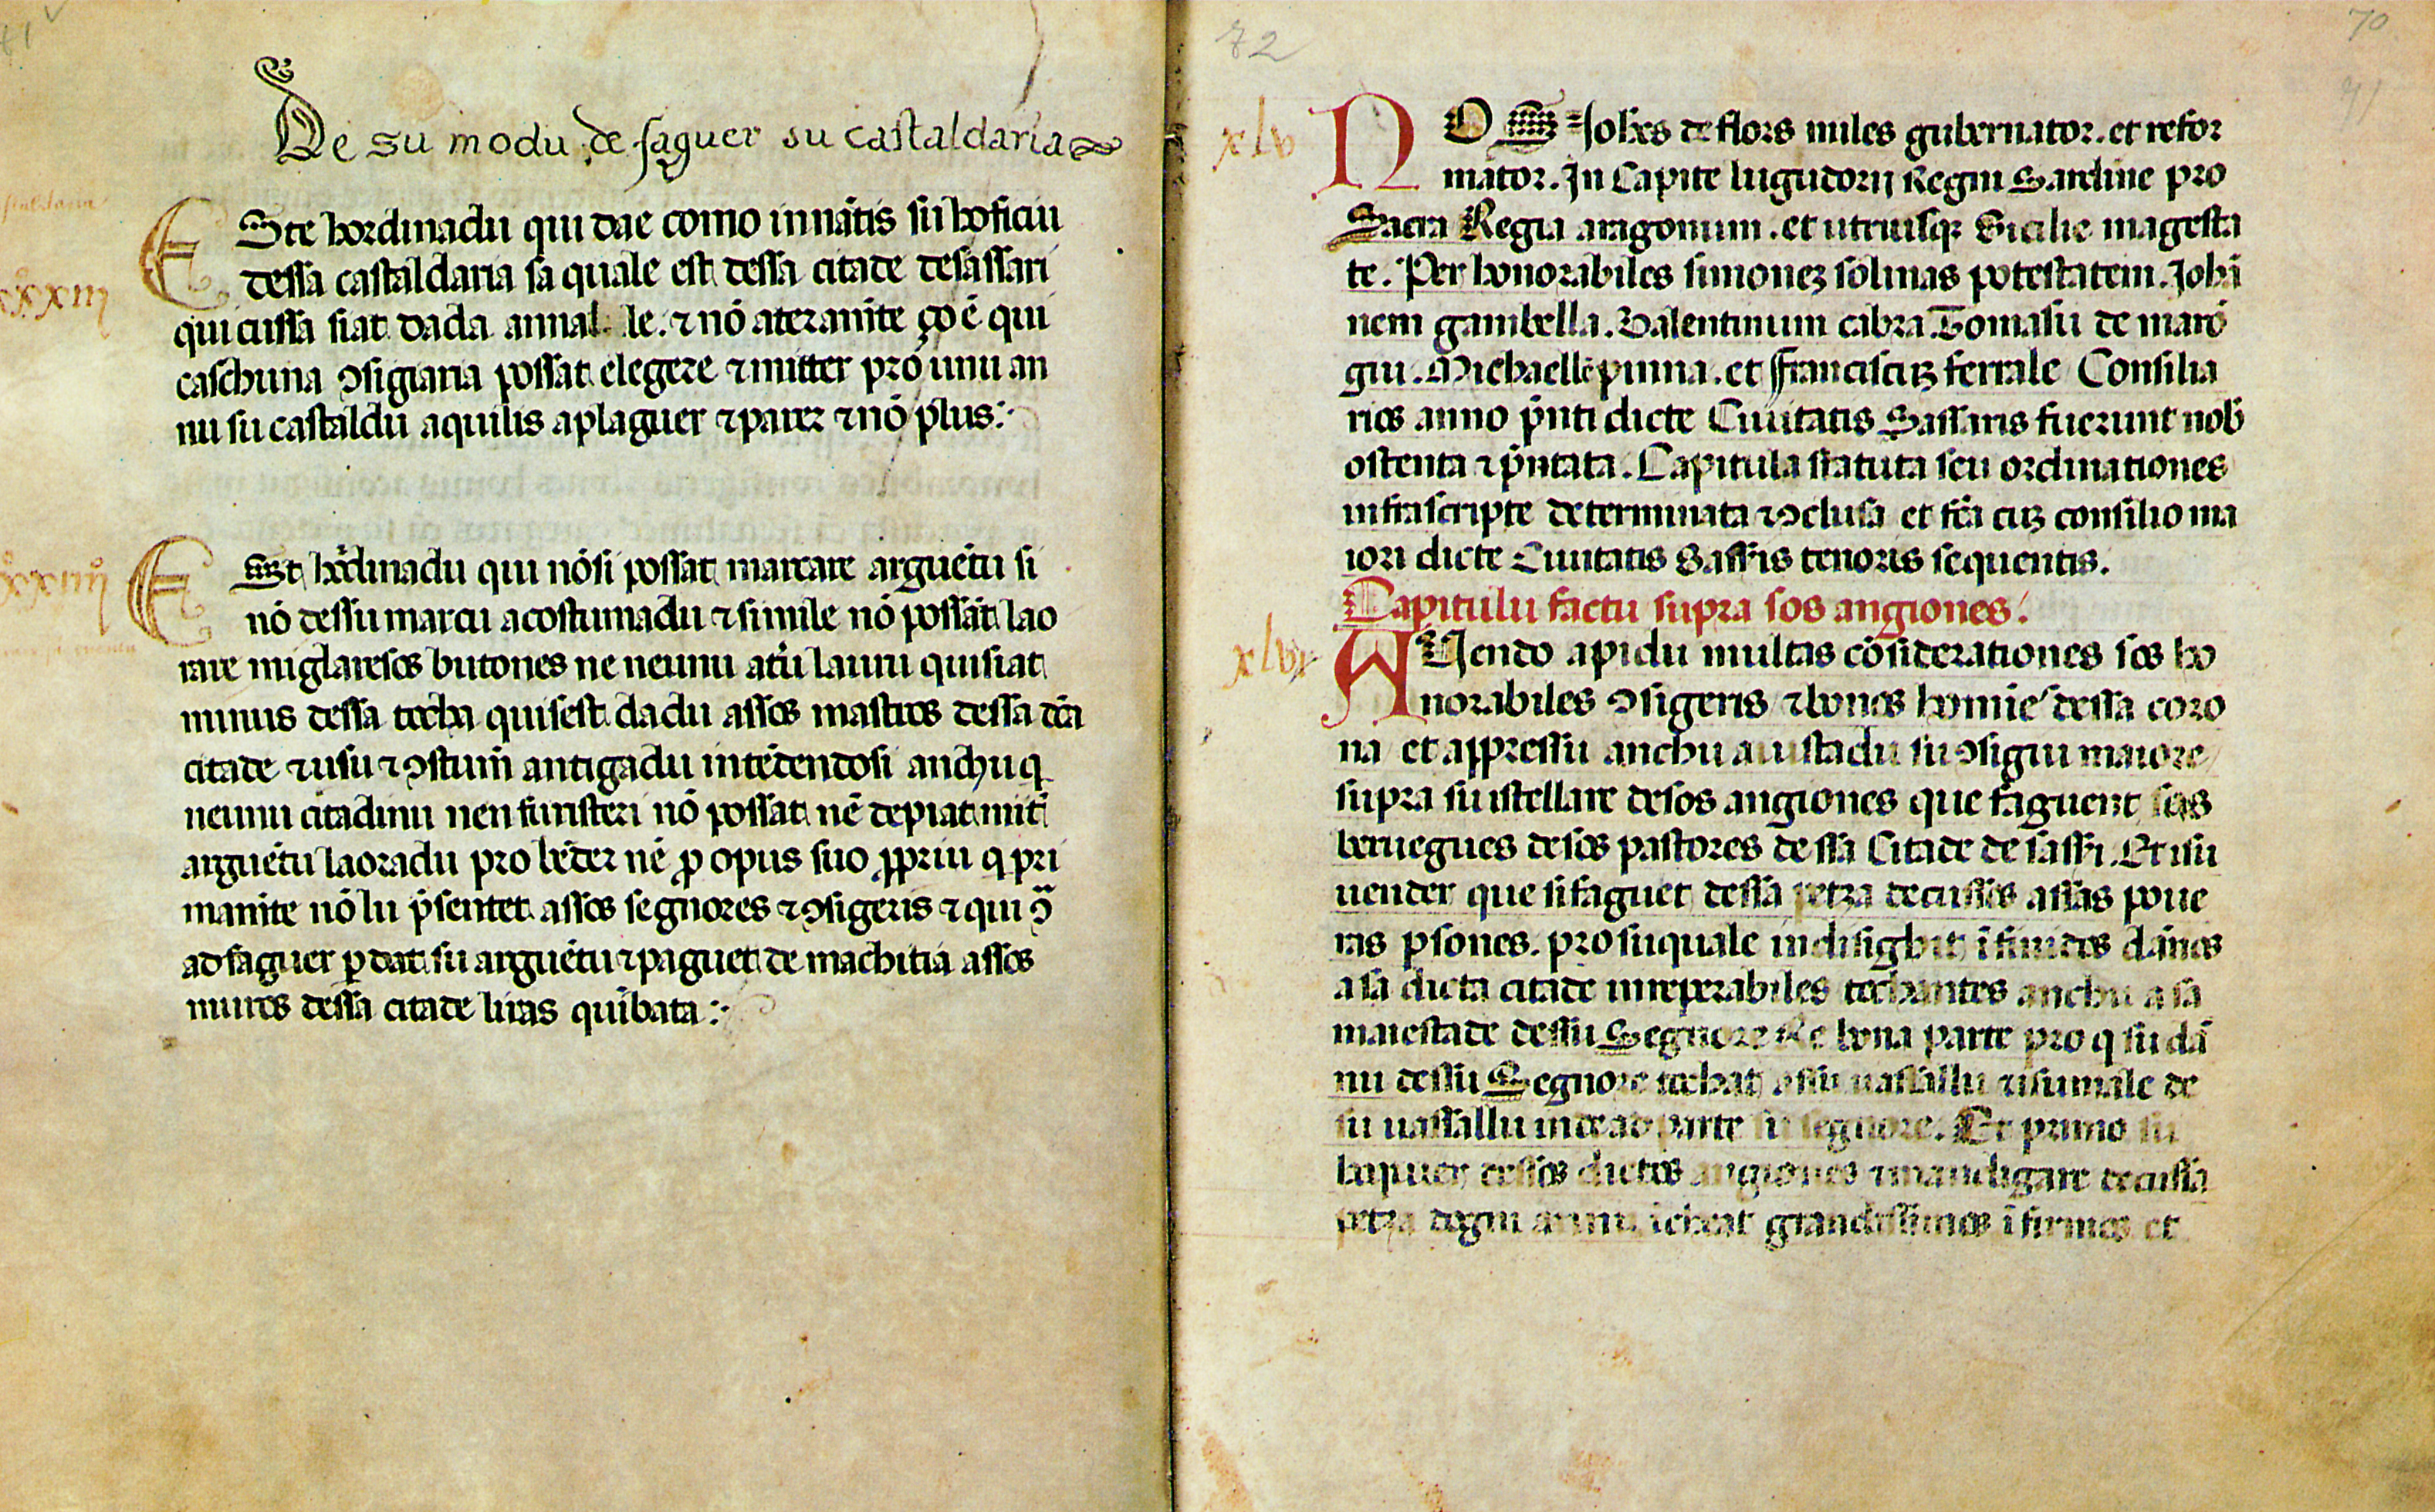 De su modu de faguer su castaldaria
ESte hordinadu qui dae como innātis su hoficiu
dessa castaldaria sa quale est dessa citade desassari
qui cussa siat dada annal le. ⁊ nō ateramēte ço ē qui
caschuna ꝯsigiaria possat elegere ⁊ mitter pro unu an
nu su castaldu aquilis aplaguer ⁊ parer ⁊ nō plus:·
xxxiiij
ESt hordinadu qui nōsi possat marcare arguētu si
nō dessu marcu acostumadu ⁊ simile nō possāt lao
rare miglaresos butones ne neunu atru lauru quisiat
minus dessa tocha quisest dadu assos mastros dessa dc̄a
citade ⁊ usu ⁊ ꝯstum̄ antigadu intēdendosi anchu q
neunu citadinu nen furisteri nō possat nē depiat mit̄
arguētu laoradu pro bēder nē ꝑ opus suo ꝓpriu q pri
mamēte nō lu p̄sentet assos segnores ⁊ ꝯsigeris ⁊ qui ꝯ̄
ad faguer ꝑdat su arguētu ⁊ paguet de machitia assos
muros dessa citade liras quībata:·
72
70
71
xlv
NOS Johēs de flors miles gubernator. et refor
mator. In Capite lugudorij Regni Sardinie pro
Sacra Regia aragonum. et utriusqꝫ Sicilie magesta
te. Per honorabiles simoneꝫ solinas potestatem. Johā
nem gambella. Valentinum cabra. Tomasiu de maro
giu. Michaelle pinna. et ffranciscuꝫ ferrale Consilia
rios anno p̄nti dicte Ciuitatis Sassaris fuerunt nob̄
ostenta ⁊ p̄ntata. Capitula statuta seu ordinationes
infrascripte determinata ⁊ ꝯclusa et fc̄a cuꝫ consilio ma
iori dicte Ciuitatis Sass̄is tenoris sequentis.
Capitulu factu supra sos angiones.
xlvj
AUendo apidu multas cōsiderationes sos ho
norabiles ꝯsigeris ⁊ bonos homīe dessa coro
na et appressu anchu auistadu su ꝯsigiu maiore
supra su istellare desos angiones que faguent sas
beruegues desos pastores dessa Citade de sass̄i. Et isu
uender que sifaguet dessa petza decussos assas poue
ras ꝑsones. pro suquale indisigbit īfinidos dānos
a sa dicta citade irreperabiles tochantes anchu a sa
maiestade dessu Segnore Re bona parte pro q su dā
nu dessu Segnore tochat assu uassallu ⁊ isumale de
su uassallu inde ad parte su segnore. Et primo su
dessos dictos angiones ⁊ mandigare decussa
petza grandissimos īfirmos et